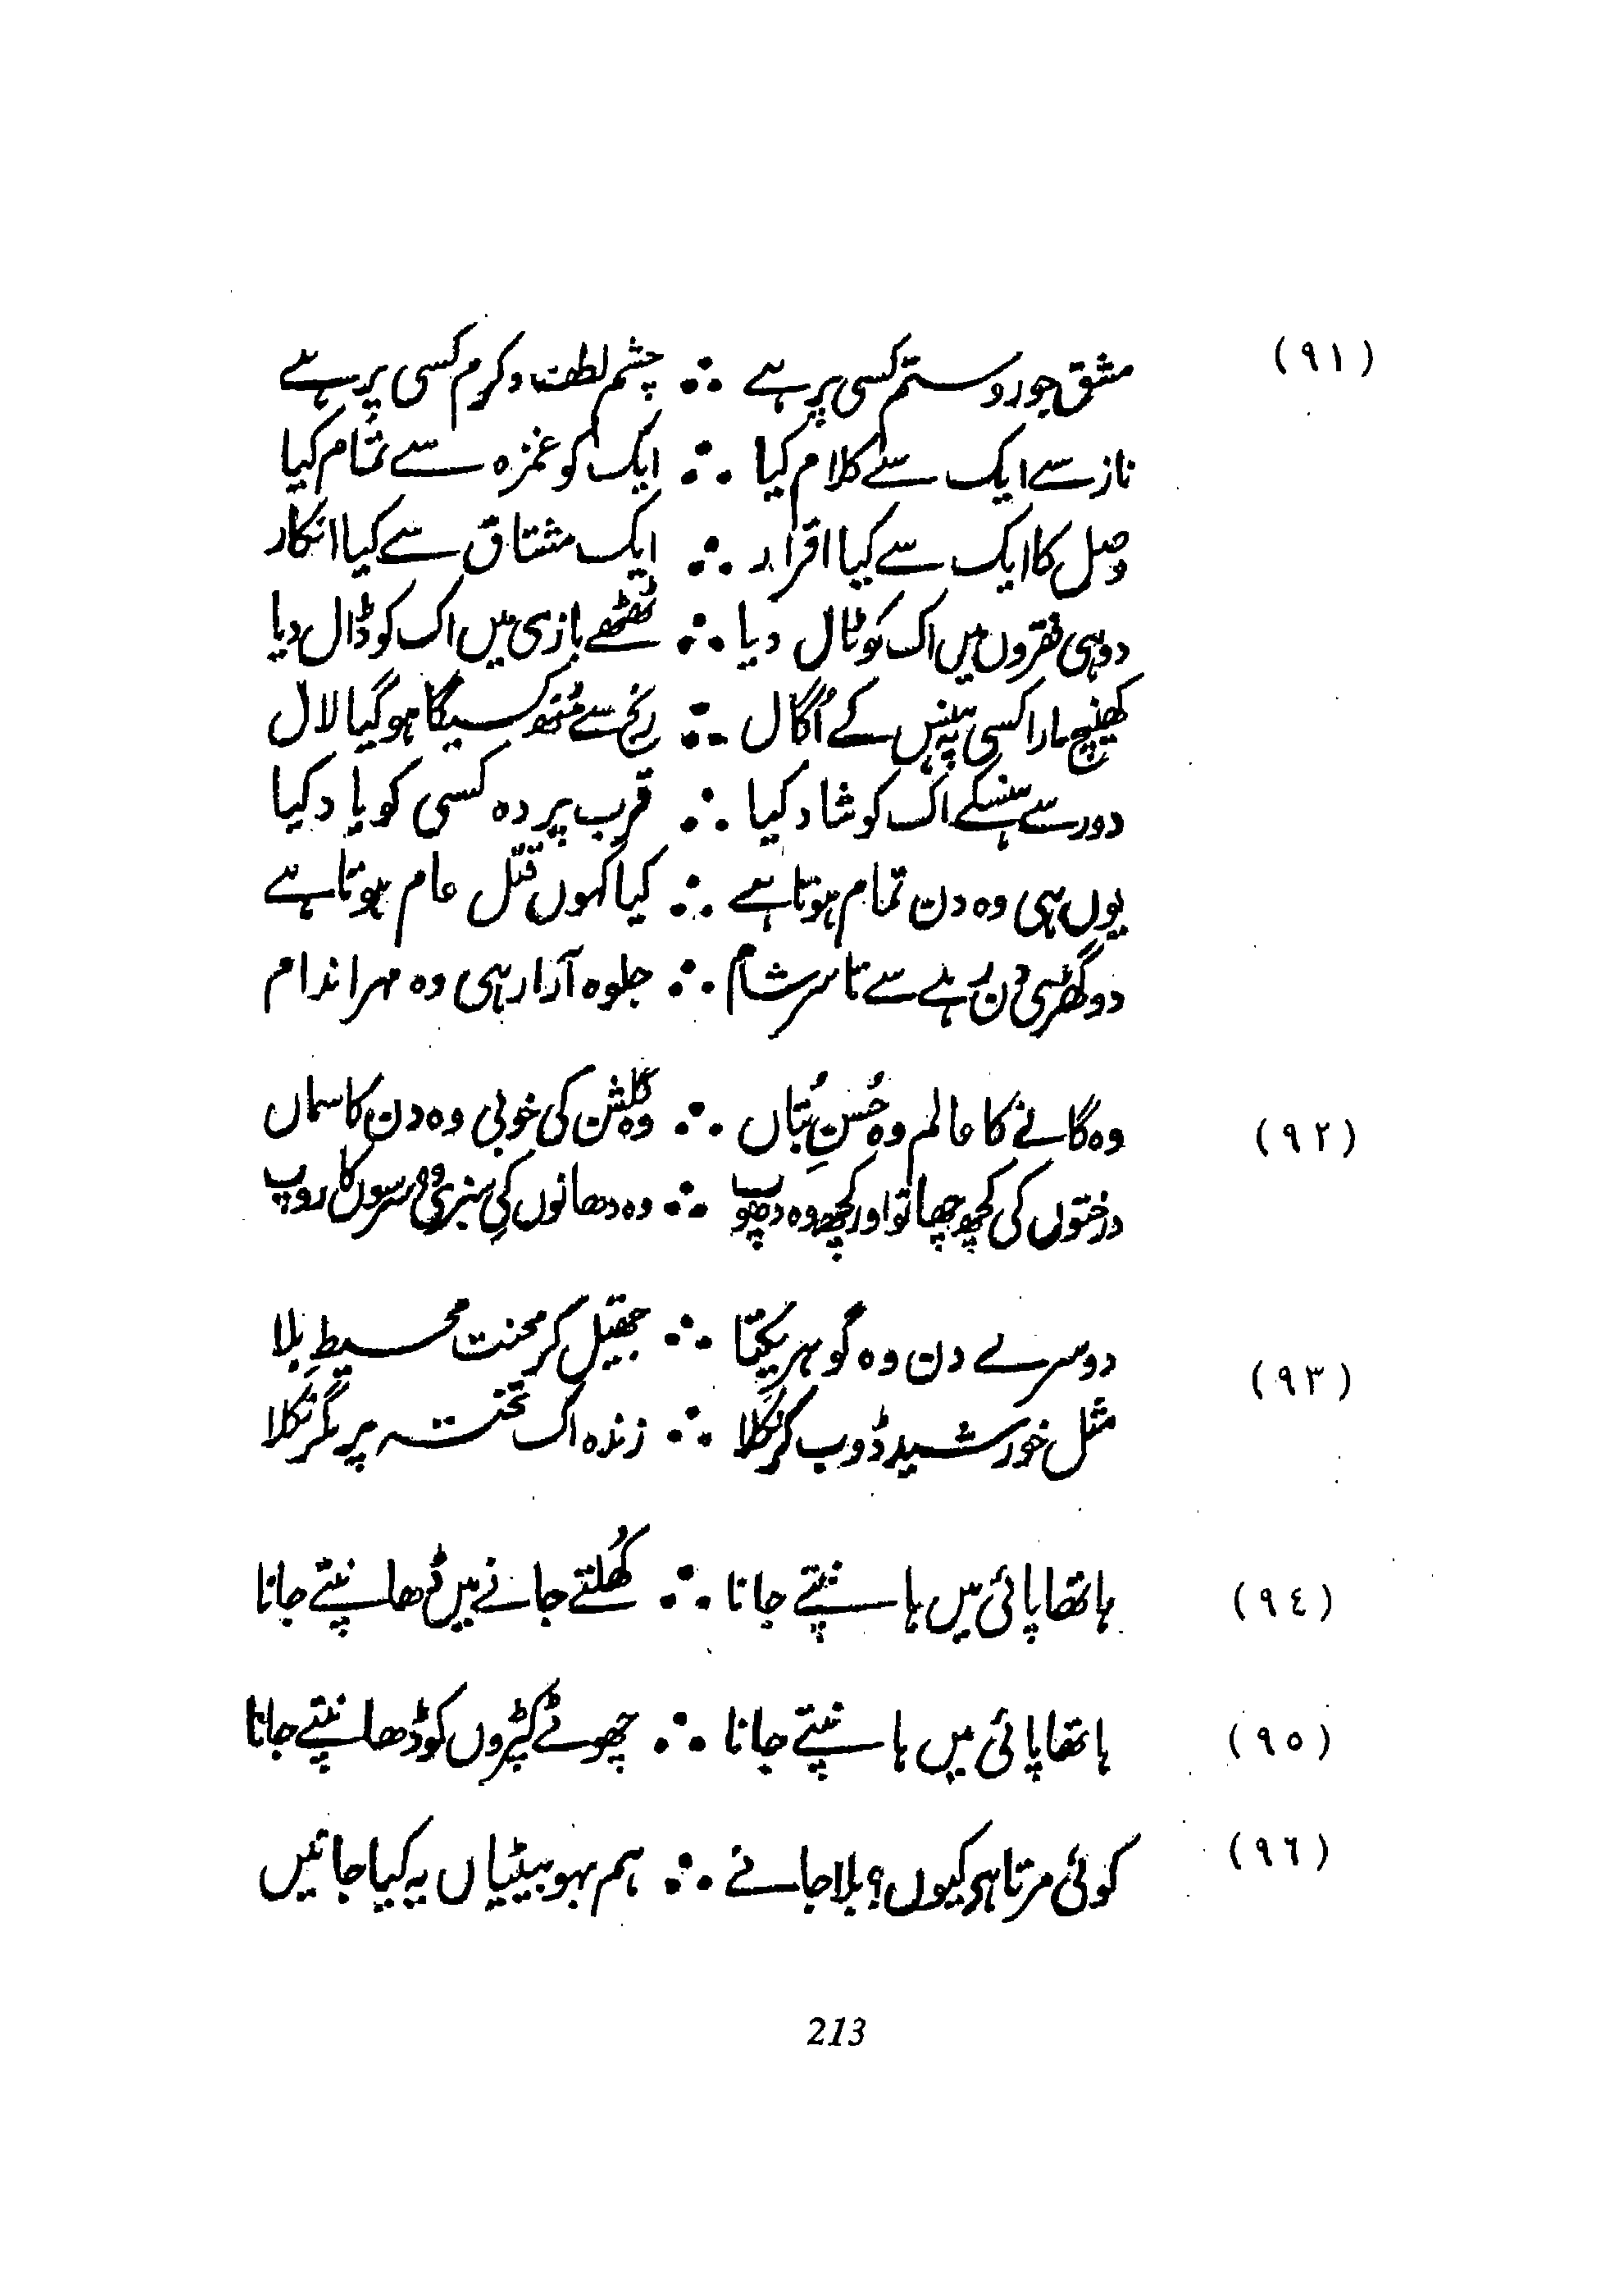 (۹۱) مشق جور و ستم کسی پر ہے ∴ چشم لطف و کرم کسی پر ہے
ناز سے ایک سے کلام کیا ∴ ایک کو غمزہ سے تمام کیا
وصل کا ایک سے کیا اقرار ∴ ایک مشتاق سے کیا انکار
دو ہی فقروں میں اک کو ٹال دیا ∴ ٹھٹھے بازی میں اک کو ڈال دیا
کھینچ مارا کسی پہ ہنس کے اُگال ∴ رنج سے مُنھ کسیکا ہو گیا لال
دور سے ہنسکے اک کو شاد کیا ∴ قرب پردہ کسی کو یاد کیا
یوں ہی وہ دن تمام ہوتا ہے ∴ کیا کہوں قتل عام ہوتا ہے
دو گھڑی دن رہے سے تا سر شام ∴ جلوہ آرا رہی وہ مہر اندام
(۹۲) وہ گانے کا عالم وہ حُسنِ بُتاں ∴ وہ گلشن کی خوبی وہ دن کا سماں
درختوں کی کچھ چھانو اور کچھ وہ دھوپ ∴ وہ دھانوں کی سبزی وہ سرسوں کا روپ
(۹۳) دوسرے دن وہ گوہر یکتا ∴ جھیل کر محنت محیطِ بلا
مثل خورشید ڈوب کر نکلا ∴ زندہ اک تختہ پر مگر نکلا
(۹٤) ہاتھا پائی میں ہانپتے جانا ∴ کُھلتے جانے میں ڈھانپتے جانا
(۹۵) ہاتھا پائی میں ہانپتے جانا ∴ چھوٹے کپڑوں کو ڈھانپتے جانا
(۹٦) کوئی مرتا ہے کیوں؟ بلا جانے ∴ ہم بہو بیٹیاں یہ کیا جانیں
213